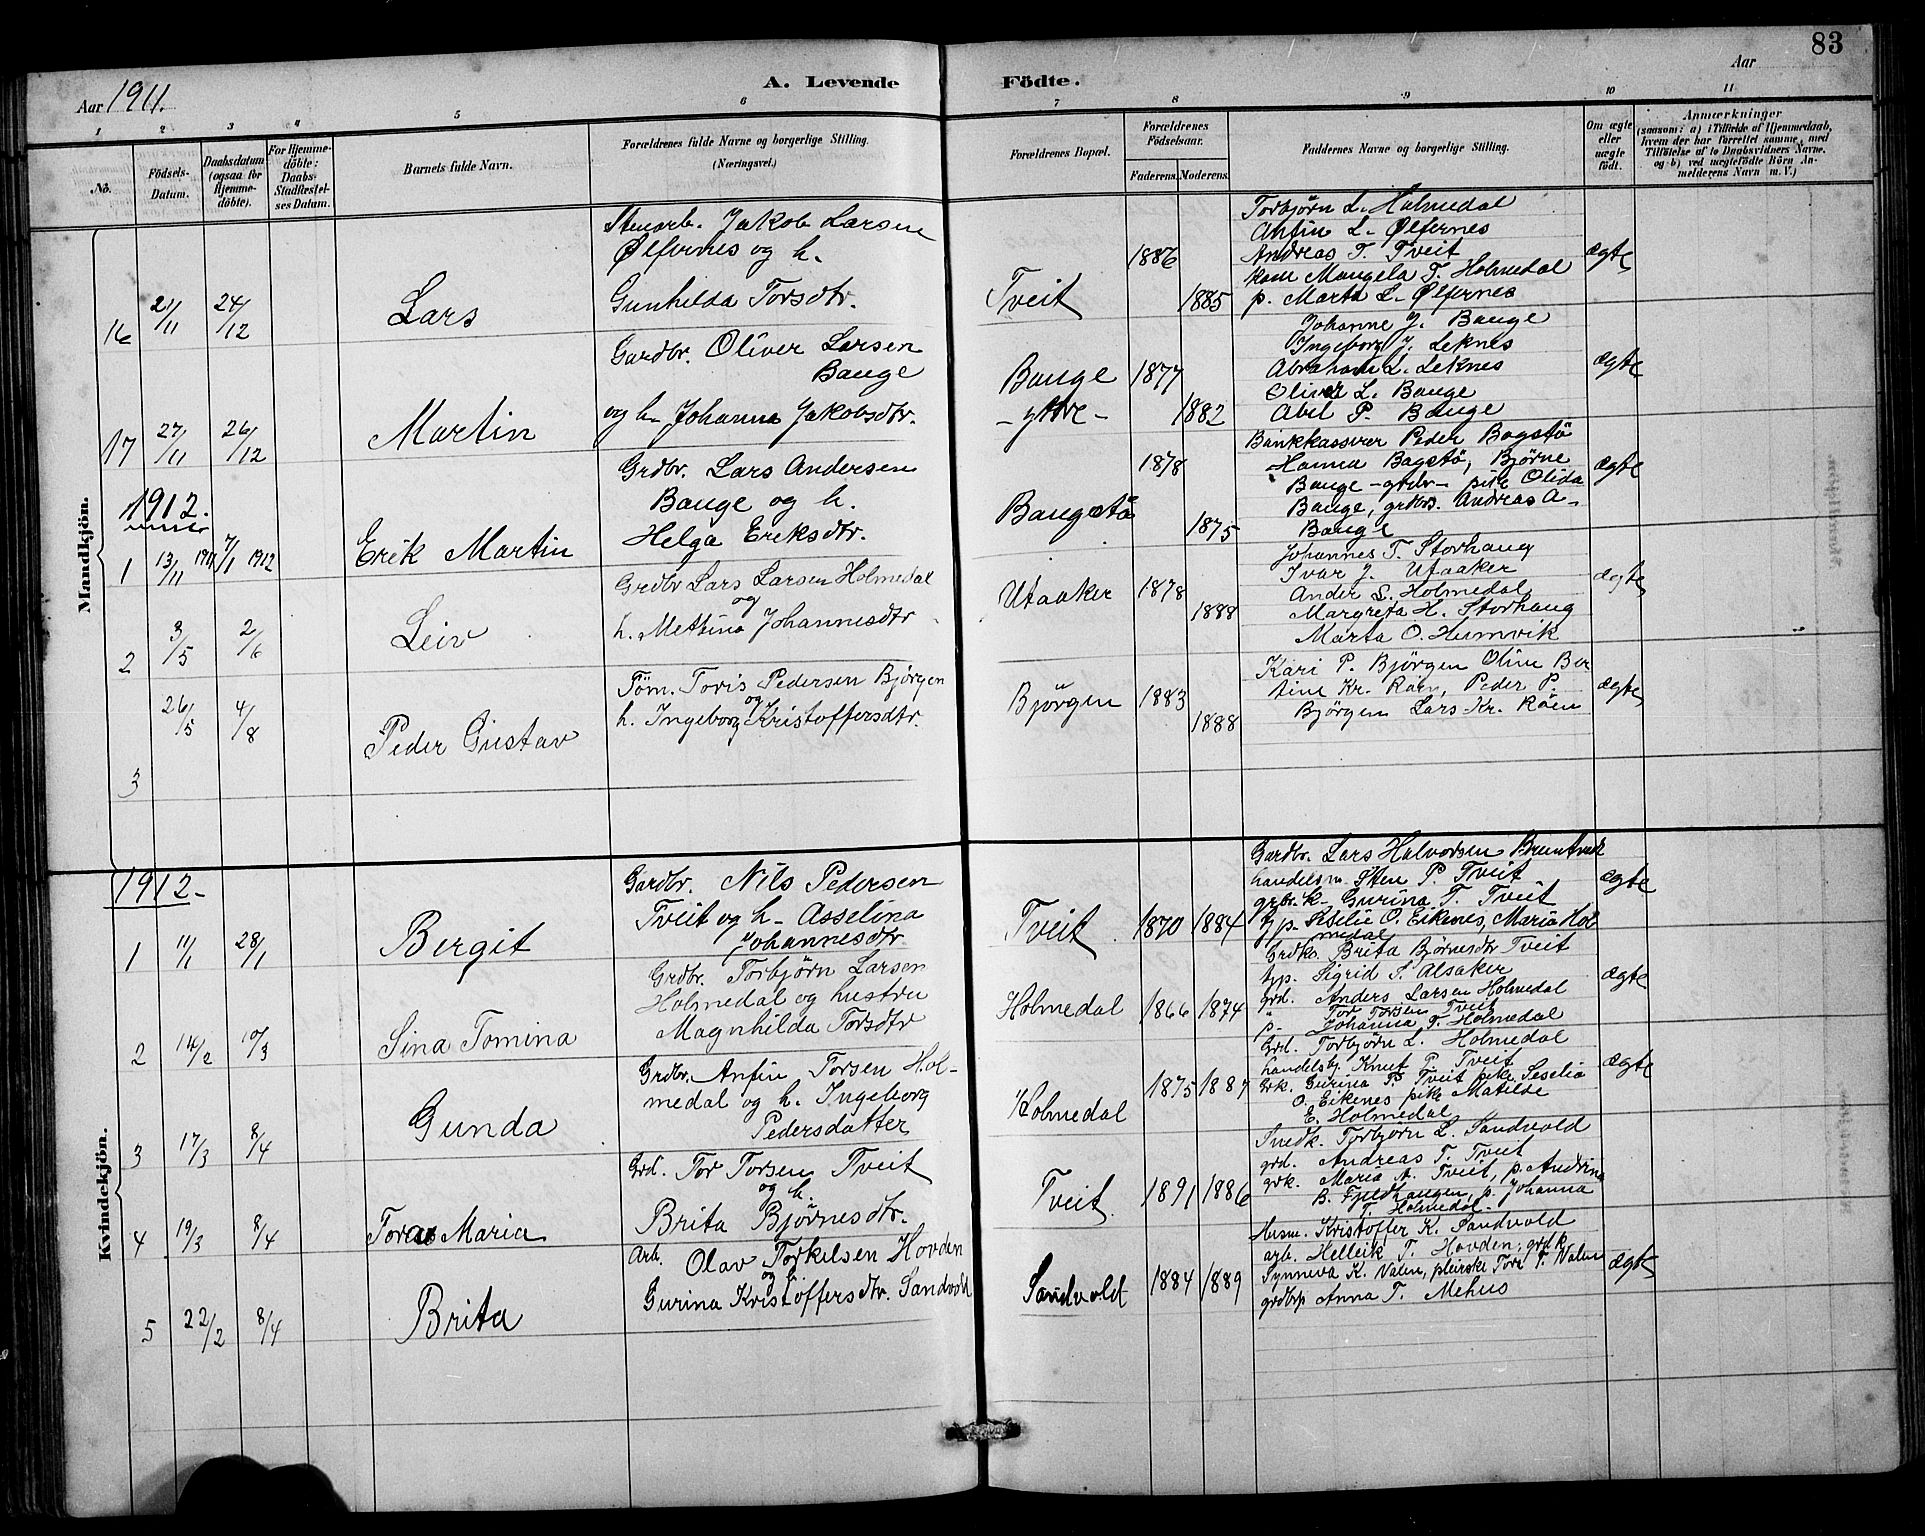 83
Aar 1911.
A. Levende Födte.
Aar
1 2 3 4 5 6 7 8 9 10 11
No.
Födsels-Datum.
Daabsdatum (ogsaa for Hjemme-döbte).
For Hjemme-döbte: Daabs-Stadfæstel-ses Datum.
Barnets fulde Navn.
Forældrenes fulde Navne og borgerlige Stilling.
(Næringsvei.)
Forældrenes Bopæl.
Forældrenes Födselsaar.
Faderens. Moderens.
Faddernes Navne og borgerlige Stilling.
Om ægte eller uægte födt.
Anmærkninger
(saasom: a) i Tilfælde af Hjemmedaab,
hvem der har forrettet samme, med
Tilföielse af to Daabsvidners Navne,
og b) ved uægtefödte Börn An-
melderens Navn m. V.)
Mandkjön.
16 21/11 24/12 Lars
Stenarb. Jakob Larsen
Ølfernes og h.
Gunhilda Torsdtr.
Tveit 1886 1885
Torbjörn L. Holmedal
Anfin L. Ølfernes
Andreas T. Tveit
kone Mangela T. Holmedal
p. Marta L. Ølfernes
ægte
17 27/11 26/12 Martin
Gardbr. Oliver Larsen
Bauge
og h. Johanna Jakobsdtr.
Bauge
- ytre -
1877 1882
Johanne J. Bauge
Ingeborg J. Leknes
Abraham L. Leknes
Oliver L. Bauge
Abel P. Bauge
ægte
1912.
1 13/11 1911 7/1 1912 Erik Martin
Grdbr. Lars Andersen
Bauge og h.
Helga Eriksdtr.
Baugstö 1878 1875
Bankkasserer Peder Bagstö
Hanna Bagstö, Björne
Bauge - grdbr - pike Olida
Bauge, grdbr. Andreas A-
Bauge
ægte
2 3/5 2/6 Leiv
Grdbr Lars Larsen Holmedal
og
h. Mettina Johannesdtr
Utaaker 1878 1888
Johannes T. Storhaug
Ivar J. Utaaker
Ander L. Holmedal
Margreta H. Storhaug
Marta O. Humvik
ægte
3 26/5 4/8 Peder Gustav
Töm. Toris Pedersen Björgen
og
h. Ingeborg Kristoffersdtr.
Björgen 1883 1888
Kari P. Björgen Oline Ber-
tine Kr. Röen, Peder P.
Björgen Lars Kr. Röen
ægte
Kvindekjön.
1912-
1 11/1 28/1 Bergit
Gardbr. Nils Pedersen
Tveit og h- Asselina
Johannesdtr.
Tveit 1870 1884
Gardbr. Lars Halvorsen
handelsm. Sten P. Tveit
grbr.k- Gurina T. Tveit
typ- Seselie O. Eikenes, Maria Hol
medal
ægte
2 14/2 10/3 Sina Tomina
Grdbr. Torbjörn Larsen
Holmedal og hustru
Magnhilda Torsdtr
Holmedal 1866 1874
Grdk. Brita Björnesdtr Tveit
typ. Sigrid S. Alsaker
grd. Anders Larsen Holmedal
" Tor Torsen Tveit
p- Johanna T. Holmedal
ægte
3 17/3 8/4 Gunda
Grdbr. Anfin Torsen Hol-
medal og h. Ingeborg
Pedersdatter
Holmedal 1875 1887
Grd. Torbjörn L. Holmedal
handelsb. Knut P. Tveit
Grk. Gurina T. Tveit pike Seselia
O. Eikenes pike Matilde
E. Holmedal
ægte
4 19/3 8/4 Tora Maria
Grd. Tor Torsen Tveit
og h.
Brita Björnesdtr.
Tveit 1891 1886
Snedk. Torbjörn L. Sandvold
grd. Andreas T. Tveit
grk. Maria A. Tveit, p. Andrina
B. Fjeldhaugen, p. Johanna
T. Holmedal-
5 22/2 8/4 Brita
Arb. Olav Torkelsen Hovden
og h.
Gurina Kristoffersdtr. Sandvold
Sandvold 1884 1889
Husm. Kristoffer K. Sandvold
arb. Helleik T. Hovden, grdk
Synneva K. Valen, pleirske Tori T. Valen
grdbrp Anna T. Mehus
ægte